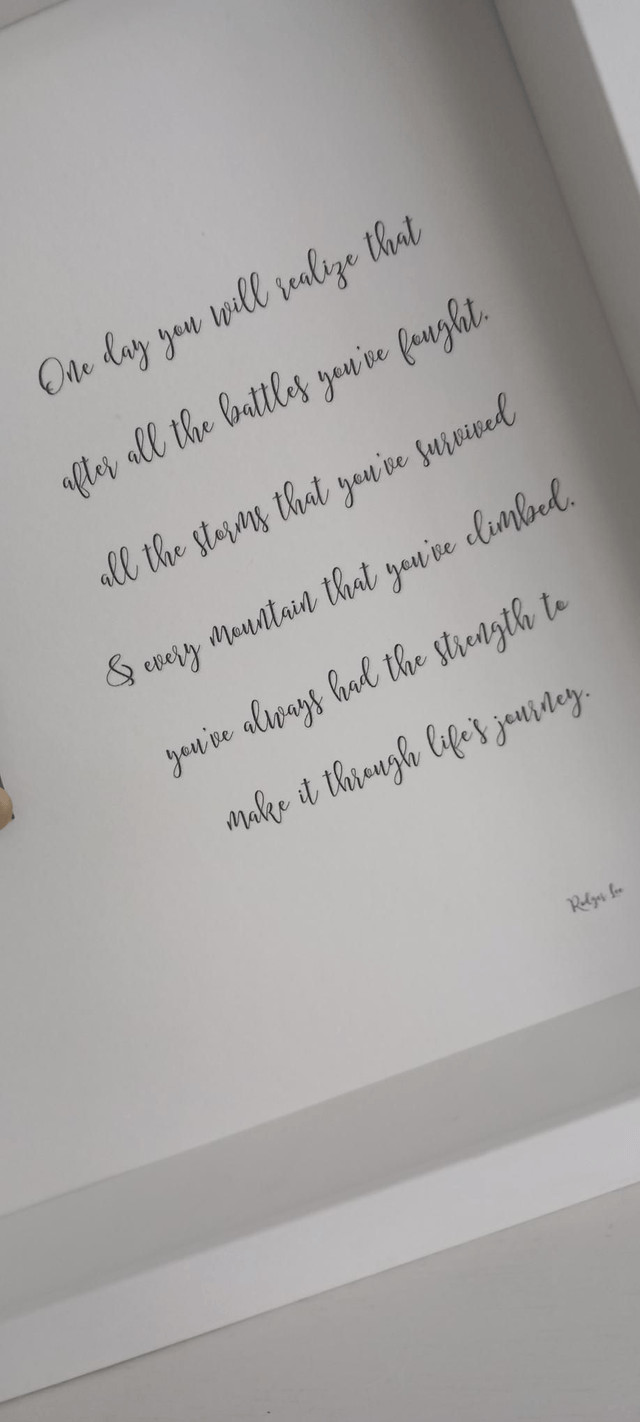 One day you will realize that
after all the battles you've fought.
all the storms that you've survived
& every mountain that you've climbed.
you've always had the strength to
make it through life's journey.